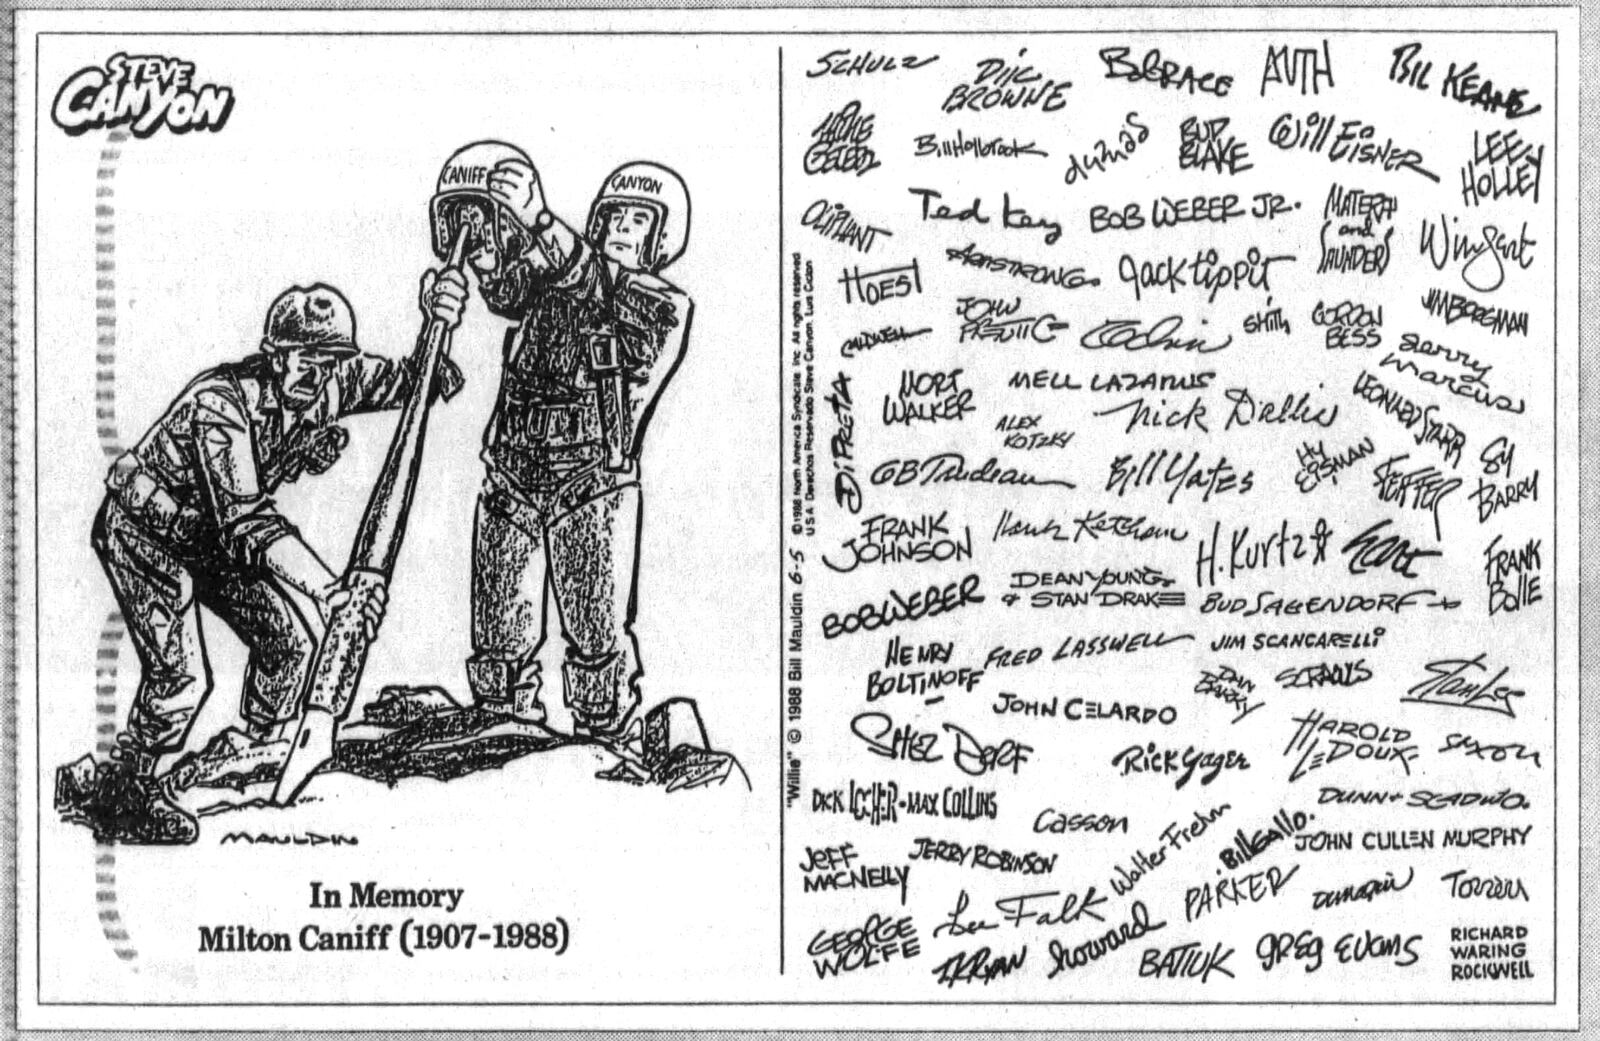 STEVE
CANYON
CANIFF
CANYON
MAULDIN
In Memory
Milton Caniff (1907-1988)
"Willie" © 1988 Bill Mauldin 6-5
© 1988 North America Syndicate, Inc. All rights reserved.
U.S.A. Derechos Reservado Steve Canyon, Luis Codon
SCHULZ
DIK
BROWNE
BOB GRACE
AUTH
BIL KEANE
Bill Holbrook
dumas
BUD
BLAKE
Will EISNER
LEE
HOLLEY
OLIPHANT
Ted Key
BOB WEBER JR.
MATERA
and
SAUNDERS
Wingert
HOEST
ARMSTRONG
Jack Tippit
CALDWELL
JOHN
PRENTICE
SMITH
GORDON
BESS
JIM BORGMAN
Jerry
Marcus
DIPRETA
MORT
WALKER
MELL LAZARUS
ALEX
KOTZKY
Nick Dallis
LEONARD STARR
GB Trudeau
Bill Yates
HY
EISMAN
FEIFFER
SY
BARRY
FRANK
JOHNSON
Hank Ketcham
H. Kurtz
FRANK
Bolle
BOB WEBER
DEAN YOUNG
& STAN DRAKE
BUD SAGENDORF
HENRY
BOLTINOFF
FRED LASSWELL
JIM SCANCARELLI
DAN
BARRY
Stan Lee
JOHN CELARDO
SHEL DORF
RICK Yager
HAROLD
LEDOUX
SAXON
DICK LOCHER - MAX COLLINS
Casson
Walter Frehm
Bill GALLO.
DUNN & SCADUTO.
JOHN CULLEN MURPHY
JEFF
MACNELLY
JERRY ROBINSON
Lee Falk
PARKER
GEORGE
WOLFE
T.K. RYAN
Howard
BATIUK
GREG EVANS
RICHARD
WARING
ROCKWELL